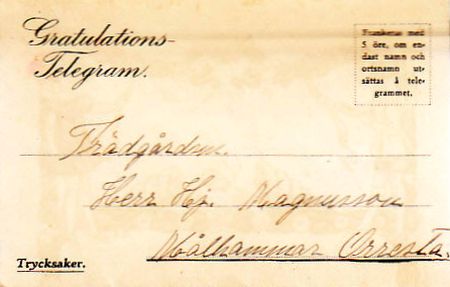 Gratulations-
Telegram.
Frankeras med
5 öre, om en-
dast namn och
ortsnamn ut-
sättas å tele-
grammet.
Trädgårdsm.
Herr Hj. Magnusson
Målhammar Orresta.
Trycksaker.